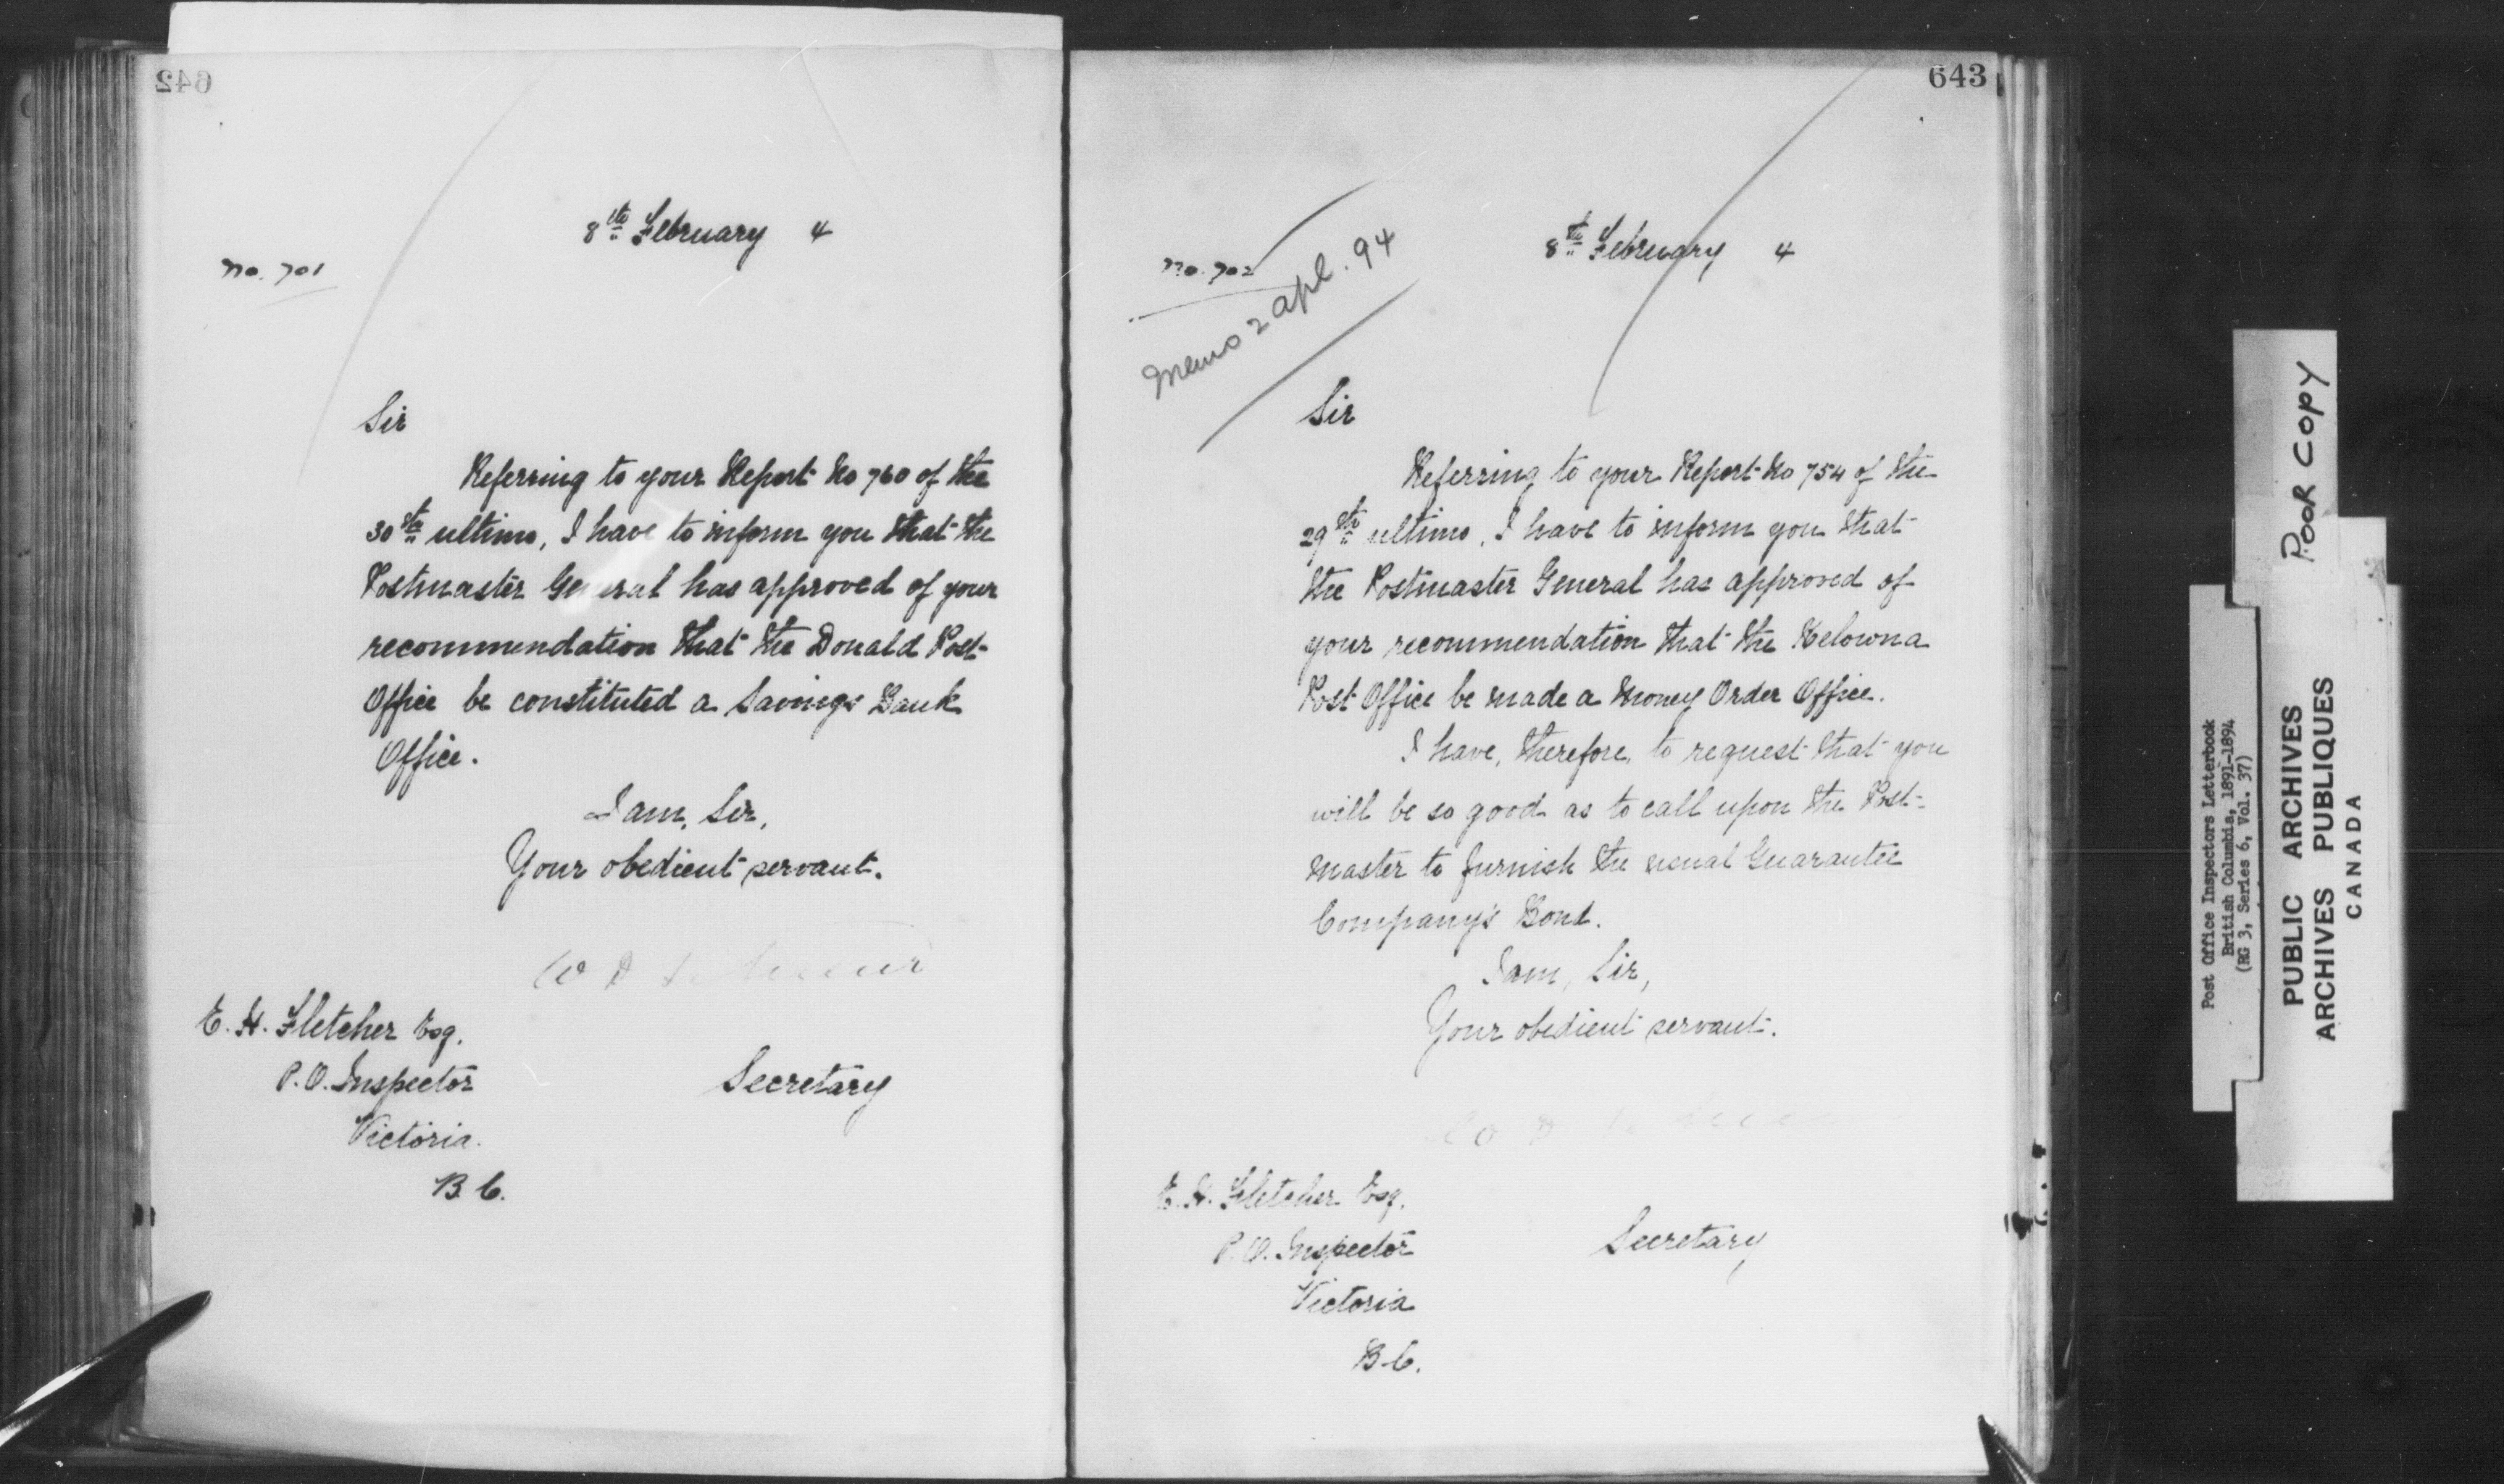 642
8th February 4
No. 701
Sir
Referring to your Report No 760 of the
30th ultimo, I have to inform you that the
Postmaster General has approved of your
recommendation that the Donald Post
Office be constituted a Savings Bank
Office.
I am, Sir,
Your obedient servant.
E. H. Fletcher Esq.
P.O. Inspector
Victoria.
B.C.
Secretary
643
8th February 4
No. 702
Memo 2 apl. 94
Sir
Referring to your Report No 754 of the
29th ultimo, I have to inform you that
the Postmaster General has approved of
your recommendation that the Kelowna
Post Office be made a Money Order Office.
I have, therefore, to request that you
will be so good as to call upon the Post-
master to furnish the usual Guarantee
Company's Bond.
I am, Sir,
Your obedient servant.
E. H. Fletcher Esq.
P.O. Inspector
Victoria
B.C.
Secretary
Post Office Inspectors Letterbook
British Columbia, 1891-1894
(RG 3, Series 6, Vol. 37)
POOR COPY
PUBLIC ARCHIVES
ARCHIVES PUBLIQUES
CANADA